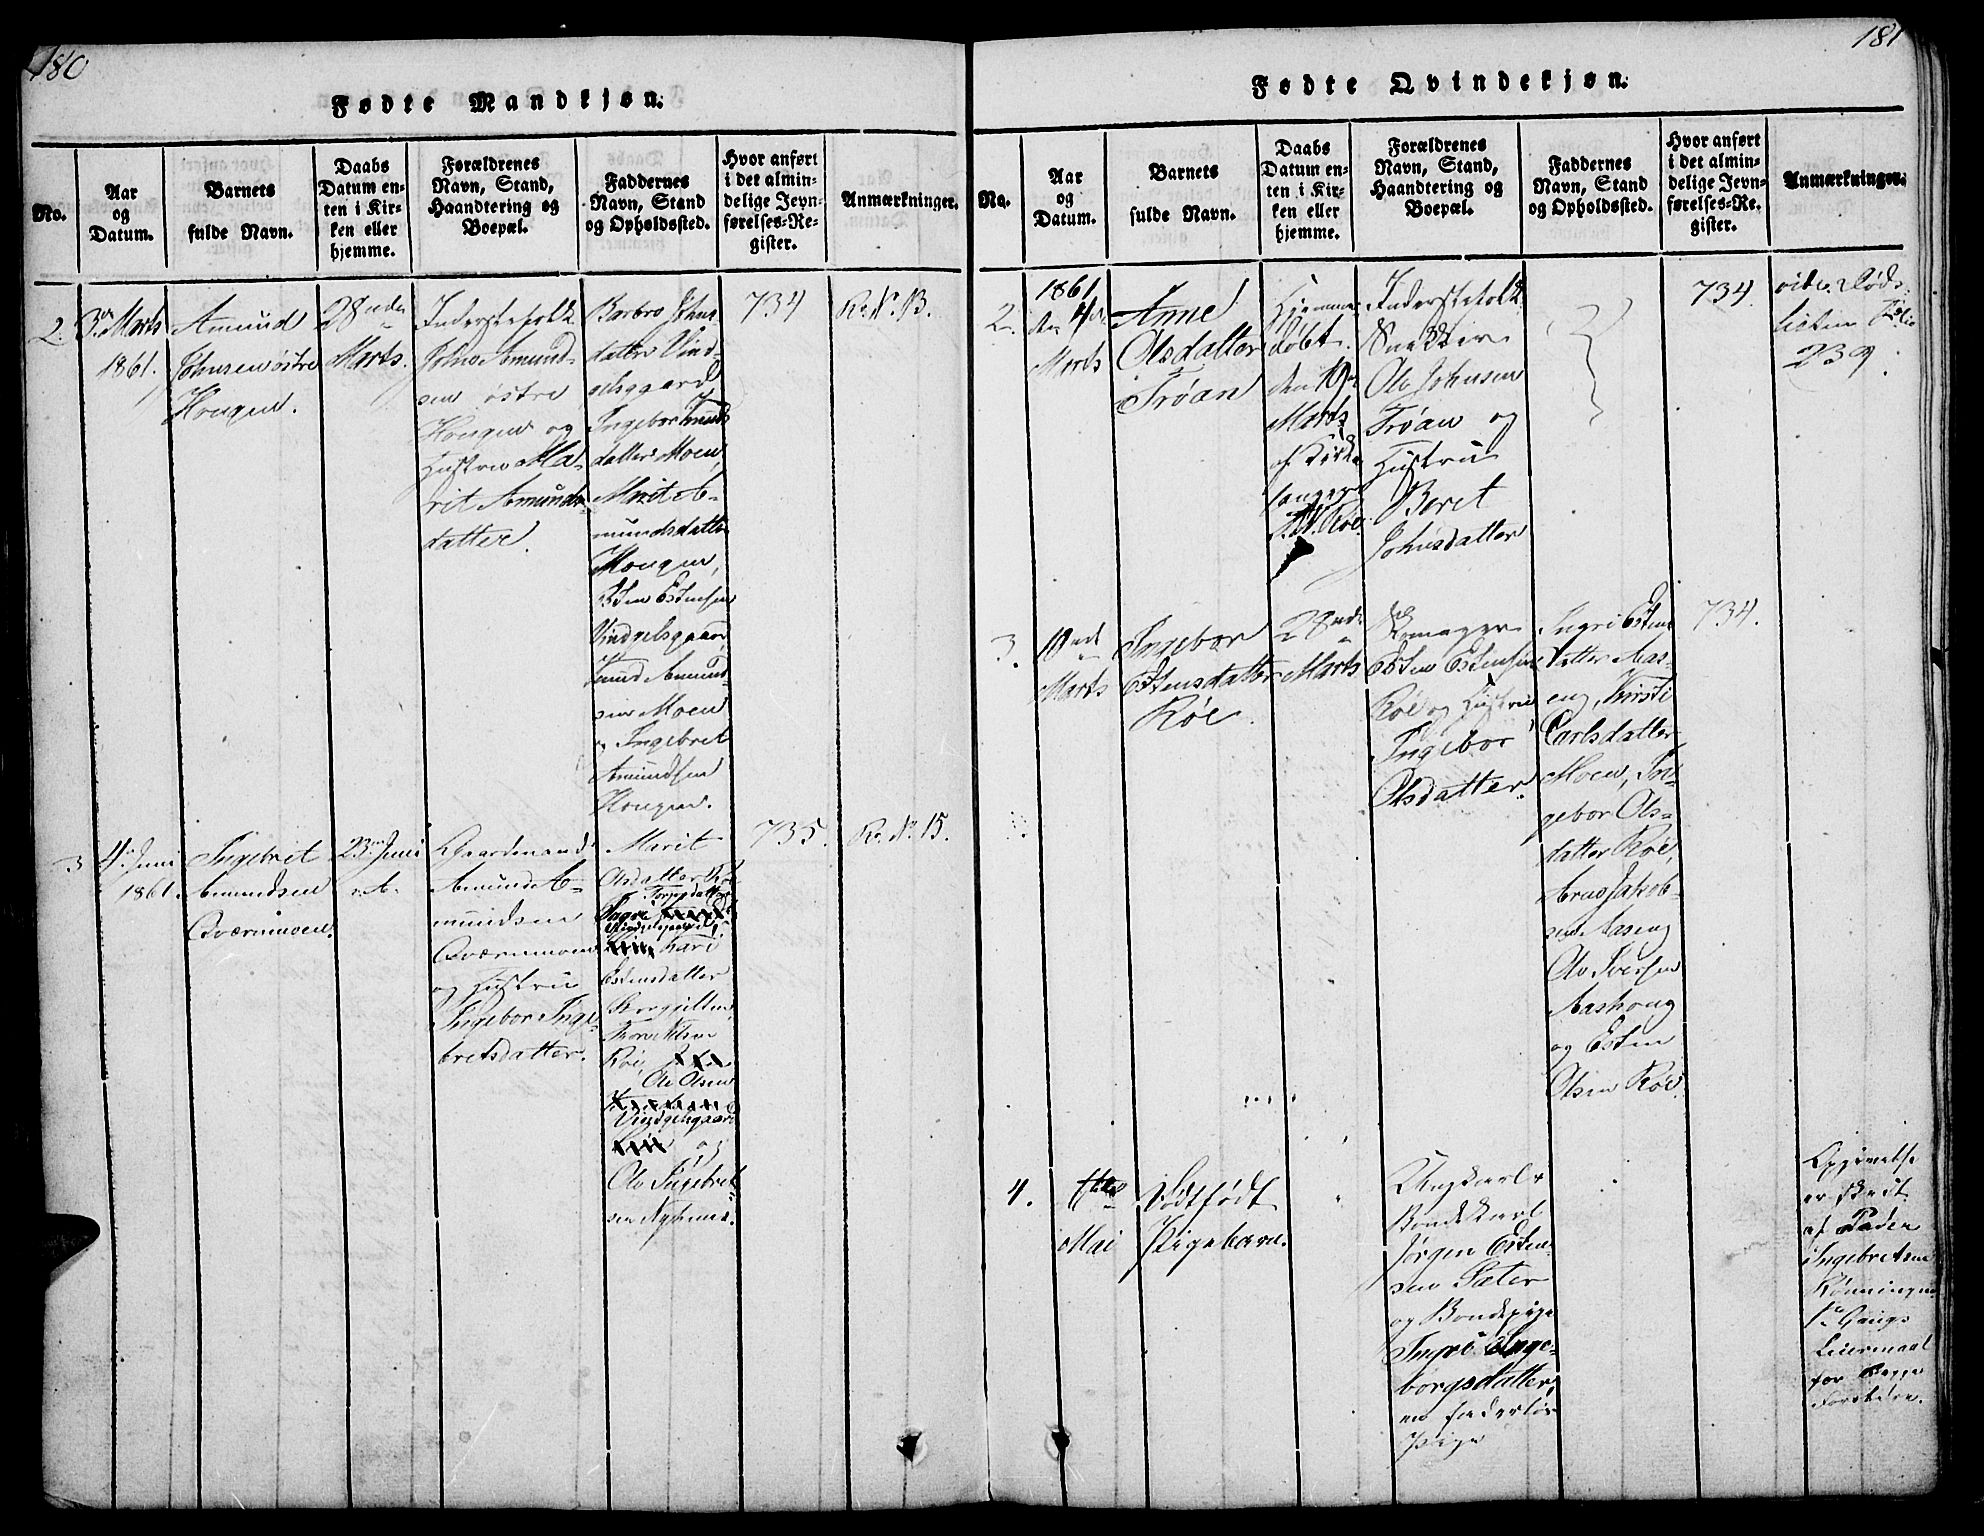 180
Fødte Mandkjøn.
No.
Aar
og
Datum.
Barnets
fulde Navn.
Daabs
Datum en-
ten i Kir-
ken eller
hjemme.
Forældrenes
Navn, Stand,
Haandtering og
Boepæl.
Faddernes
Navn, Stand
og Opholdssted.
Hvor anført
i det almin-
delige Jevn-
førelses-Re-
gister.
Anmærkninger.
2.
3die Marts
1861.
Amund
Johnsen østre
Hougen.
28nde
Marts.
Inderstefolk
John Amund-
sen østre
Hougen og
Hustru Ma-
rit Amunds-
datter.
Barbro Johns-
datter Vind-
gelsgaard,
Ingebor
datter Moen,
Marit A-
mundsdatter
Hougen,
Esten Estensen
Vindgelsgaard,
Amund-
sen Moen
og Ingebret
Amundsen
Hougen.
734
No. 13.
3
4. Juni
1861.
Ingebret
Amundsen
Qværnmoen.
23. Juni
Gaardmand
Amund A-
mundsen
Qværnmoen
og Hustru
Ingebor Inge-
bretsdatter.
Marit
Olsdatter
Ingri
Kari
Estensdatter
Nilsen
Røe,
Ole Olsen
Vindgelsgaard
og
Ole Ingebret-
sen
735.
No. 15.
181
Fødte Qvindekjøn.
No.
Aar
og
Datum.
Barnets
fulde Navn.
Daabs
Datum en-
ten i Kir-
ken eller
hjemme.
Forældrenes
Navn, Stand,
Haandtering og
Boepæl.
Faddernes
Navn, Stand
og Opholdssted.
Hvor anført
i det almin-
delige Jevn-
førelses-Re-
gister.
Anmærkninger.
2.
1861
den
Marts
Anne
Olsdatter
Trøan
Hjemme-
døbt
den 19
Marts
af Kirke-
sanger
Røe.
Inderstefolk
Snekker
Ole Johnsen
Trøan og
Hustru
Beret
Johnsdatter
734.
vide Døds-
listen Folio
239.
3.
10nde
Marts
Ingebor
Estensdatter
Røe.
28nde
Marts
Skomager
Esten Estensen
Røe og Hustru
Ingebor
Olsdatter.
Ingri Estens-
datter Aas-
eng, Kirsti
Carlsdatter
Moen, In-
gebor Ols-
datter Røe,
Arne Jakob-
sen Aaseng
Ole Iversen
Aashoug
og Esten
Olsen Røe.
734.
4.
Mai
Dødfødt
Pigebarn.
Ungkarl
Bondekarl
Jørgen Esten-
sen Sæter
og Bondepige
Ingri Inge-
borgsdatter,
en faderløs
Pige
Opgivelse
er skedt
af Peder
Ingebretsen
Rønningen
1ste Gangs
Leiermaal
for Begge
Forældre.